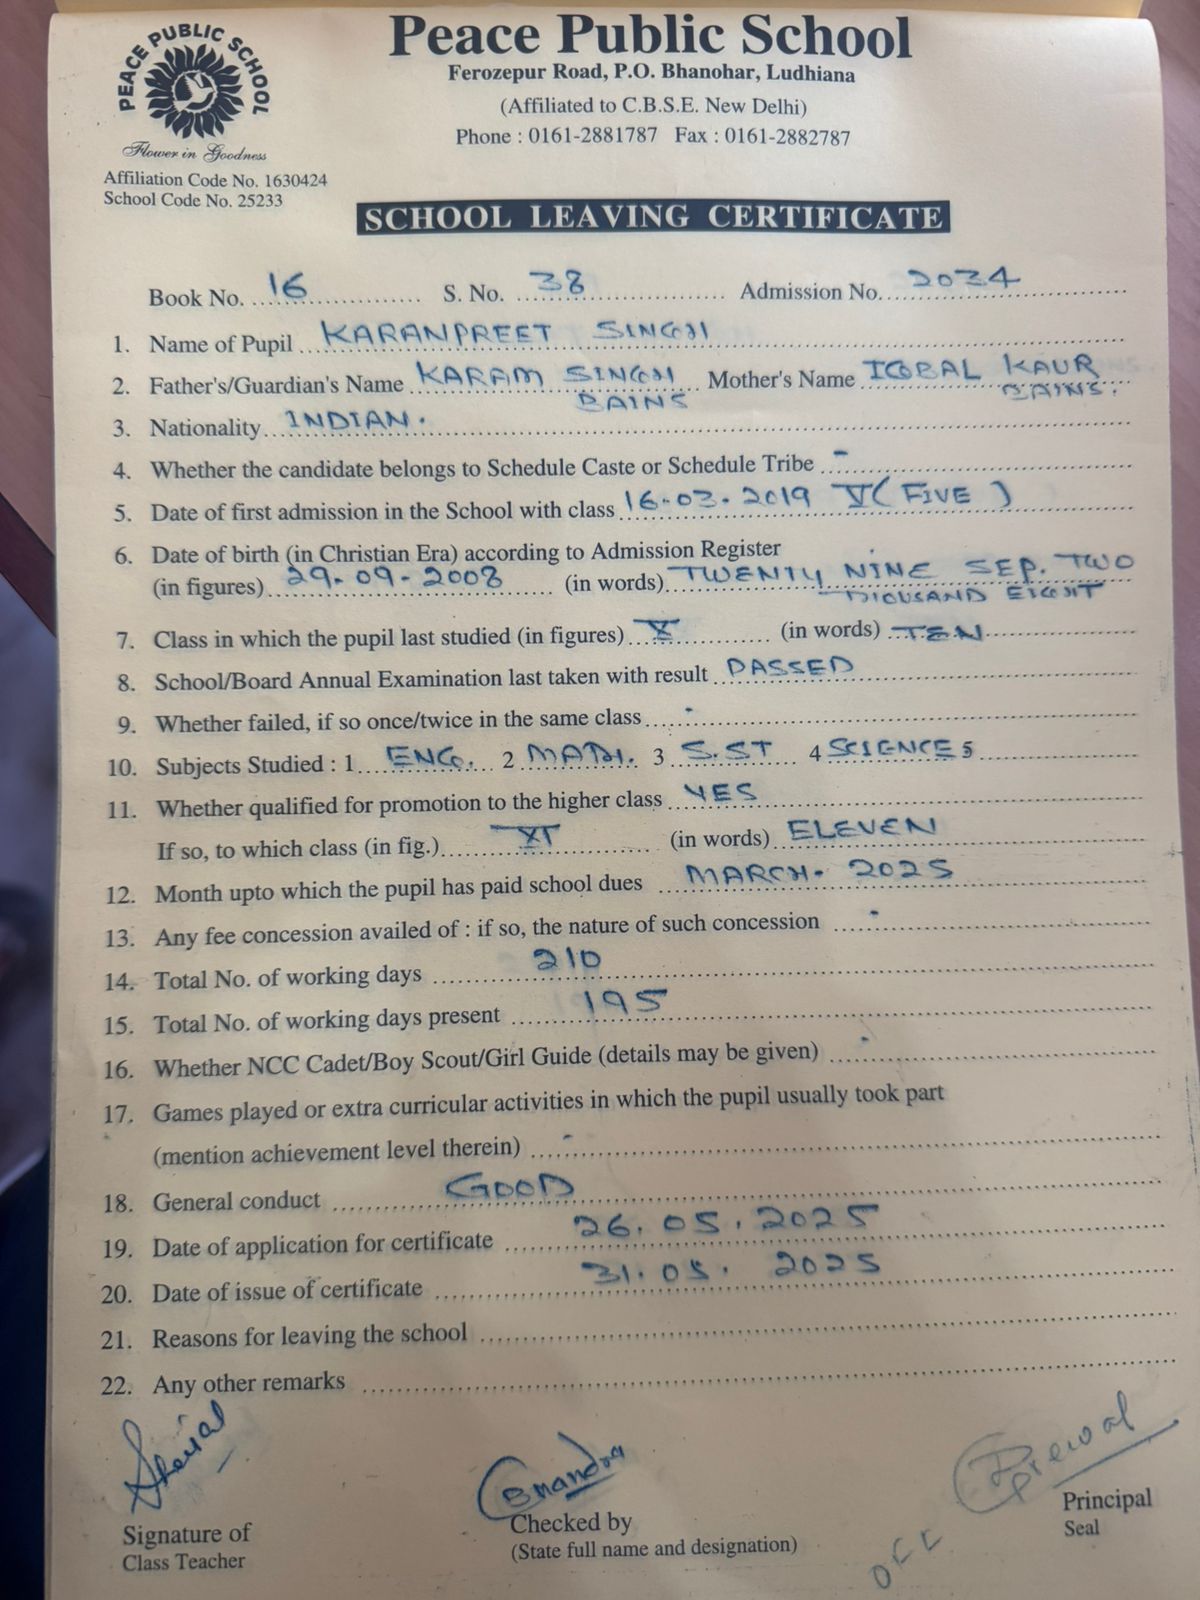 PEACE PUBLIC SCHOOL
Flower in Goodness
Affiliation Code No. 1630424
School Code No. 25233
Peace Public School
Ferozepur Road, P.O. Bhanohar, Ludhiana
(Affiliated to C.B.S.E. New Delhi)
Phone : 0161-2881787 Fax : 0161-2882787
SCHOOL LEAVING CERTIFICATE
Book No. 16 S. No. 38 Admission No. 2034
1. Name of Pupil KARANPREET SINGH
2. Father's/Guardian's Name KARAM SINGH BAINS Mother's Name IQBAL KAUR BAINS.
3. Nationality INDIAN.
4. Whether the candidate belongs to Schedule Caste or Schedule Tribe -
5. Date of first admission in the School with class 16-03-2019 V (FIVE)
6. Date of birth (in Christian Era) according to Admission Register
(in figures) 29-09-2008 (in words) TWENTY NINE SEP. TWO THOUSAND EIGHT
7. Class in which the pupil last studied (in figures) X (in words) TEN
8. School/Board Annual Examination last taken with result PASSED
9. Whether failed, if so once/twice in the same class -
10. Subjects Studied : 1 ENG. 2 MATH. 3 S.ST 4 SCIENCE 5
11. Whether qualified for promotion to the higher class YES
If so, to which class (in fig.) XI (in words) ELEVEN
12. Month upto which the pupil has paid school dues MARCH. 2025
13. Any fee concession availed of : if so, the nature of such concession -
14. Total No. of working days 210
15. Total No. of working days present 195
16. Whether NCC Cadet/Boy Scout/Girl Guide (details may be given) -
17. Games played or extra curricular activities in which the pupil usually took part
(mention achievement level therein) -
18. General conduct GOOD
19. Date of application for certificate 26.05.2025
20. Date of issue of certificate 31.05.2025
21. Reasons for leaving the school
22. Any other remarks
Signature of
Class Teacher
Checked by
(State full name and designation)
Principal
Seal